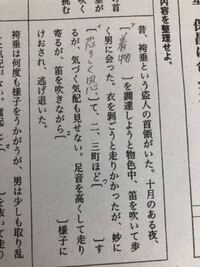 内容を整理せよ。
昔、袴垂という盗人の首領がいた。十月のある夜、
〔着物〕を調達しようと物色中、笛を吹いて歩
く男に会った。衣を剝ごうと走りかかったが、妙に
〔恐ろしく思っ〕て、二、三町ほど〔　　〕す
るが、気づく気配も見せない。足音を高くして走り
寄るが、笛を吹きながら〔　　〕様子に
けおされ、逃げ退いた。
袴垂は何度も様子をうかがうが、男は少しも取り乱